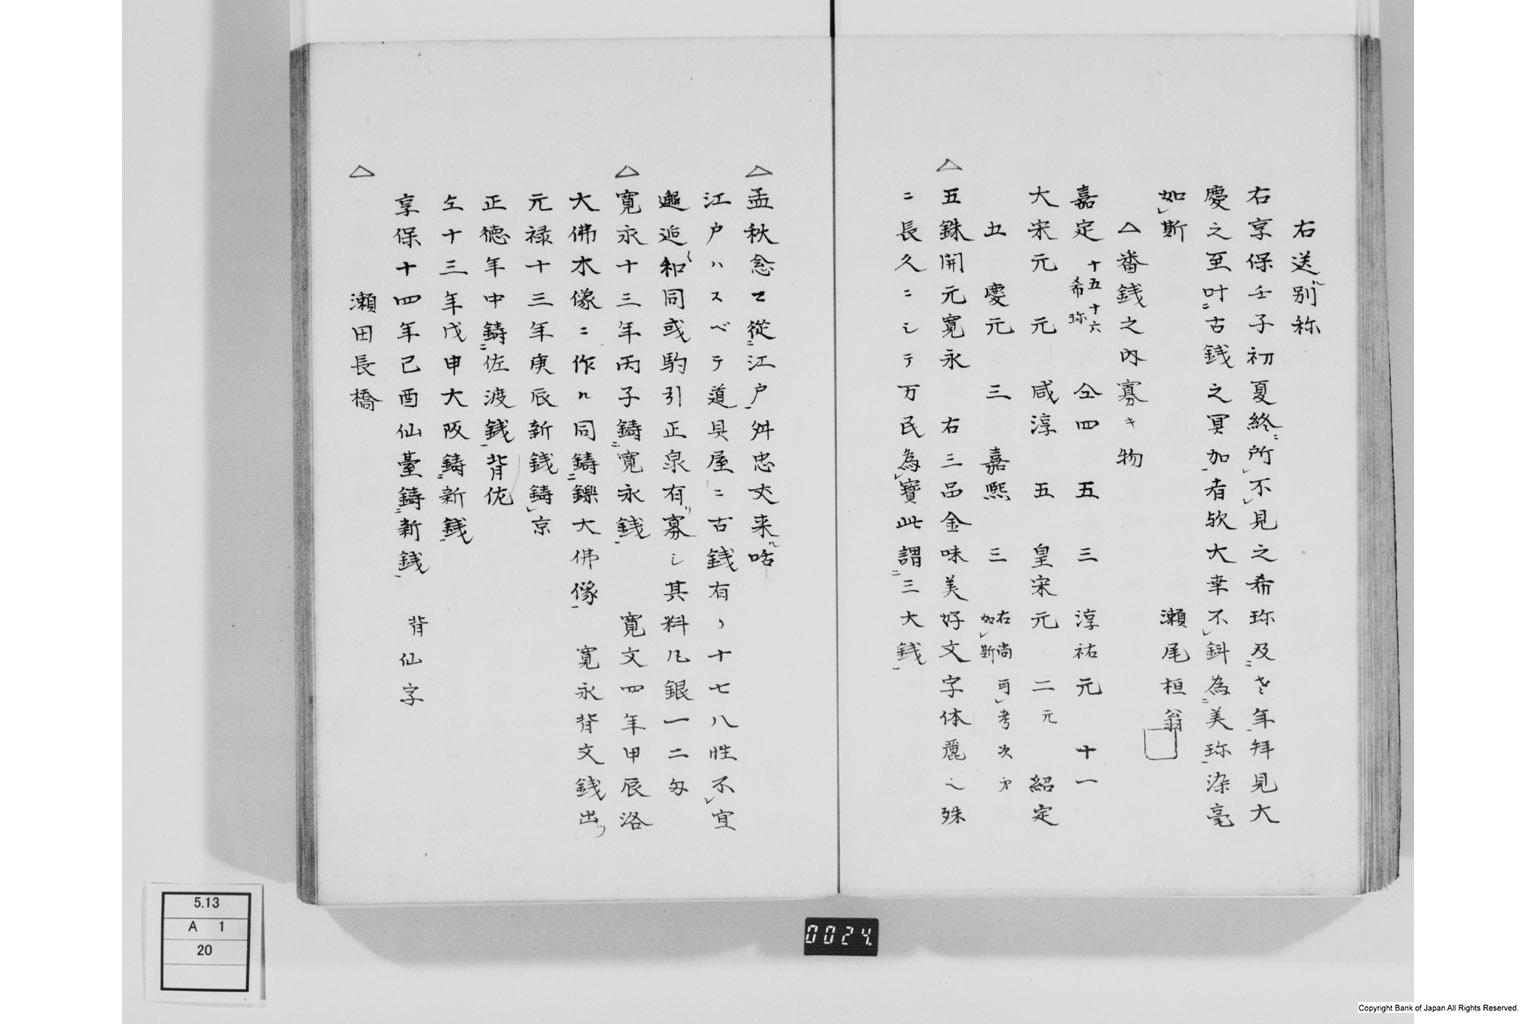 右送別称
右享保壬子初夏終所不見之希珎及老年拜見大
慶之至叶古銭之冥加者欤大幸不斜為美珎染毫
如斯　瀬尾桓翁
△番銭之内寡キ物
嘉定 十五十六 希珎　仝四　五　三　淳祐元　十一
大宋元　元　咸淳　五　皇宋元　二元　紹定
五　慶元　三　嘉熙　三　右尚可考次才 如斯
△五銖開元寛永　右三品金味美好文字体麗シ殊
ニ長久ニシテ万民為寳此謂三大銭
△孟秋念二従江戸舛忠丈来咭
江戸ハスベテ道具屋ニ古銭有ヽ十七八性不宜
邂逅和同或駒引正泉有寡シ其料凡銀一二匁
△寛永十三年丙子鋳寛永銭　寛文四年甲辰洛
大佛木像ニ作ル同鋳鑠大佛像　寛永背文銭出
元禄十三年庚辰新銭鋳京
正徳年中鋳佐渡銭背佐
仝十三年戊申大阪鋳新銭
享保十四年己酉仙臺鋳新銭　背仙字
△　瀬田長橋
5.13
A 1
20
0024.
Copyright Bank of Japan All Rights Reserved.